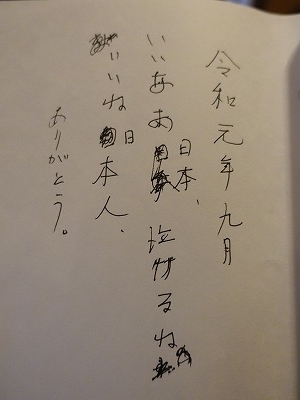 令和元年九月
いいなあ日本、泣けるね
いいね日本人、
ありがとう。